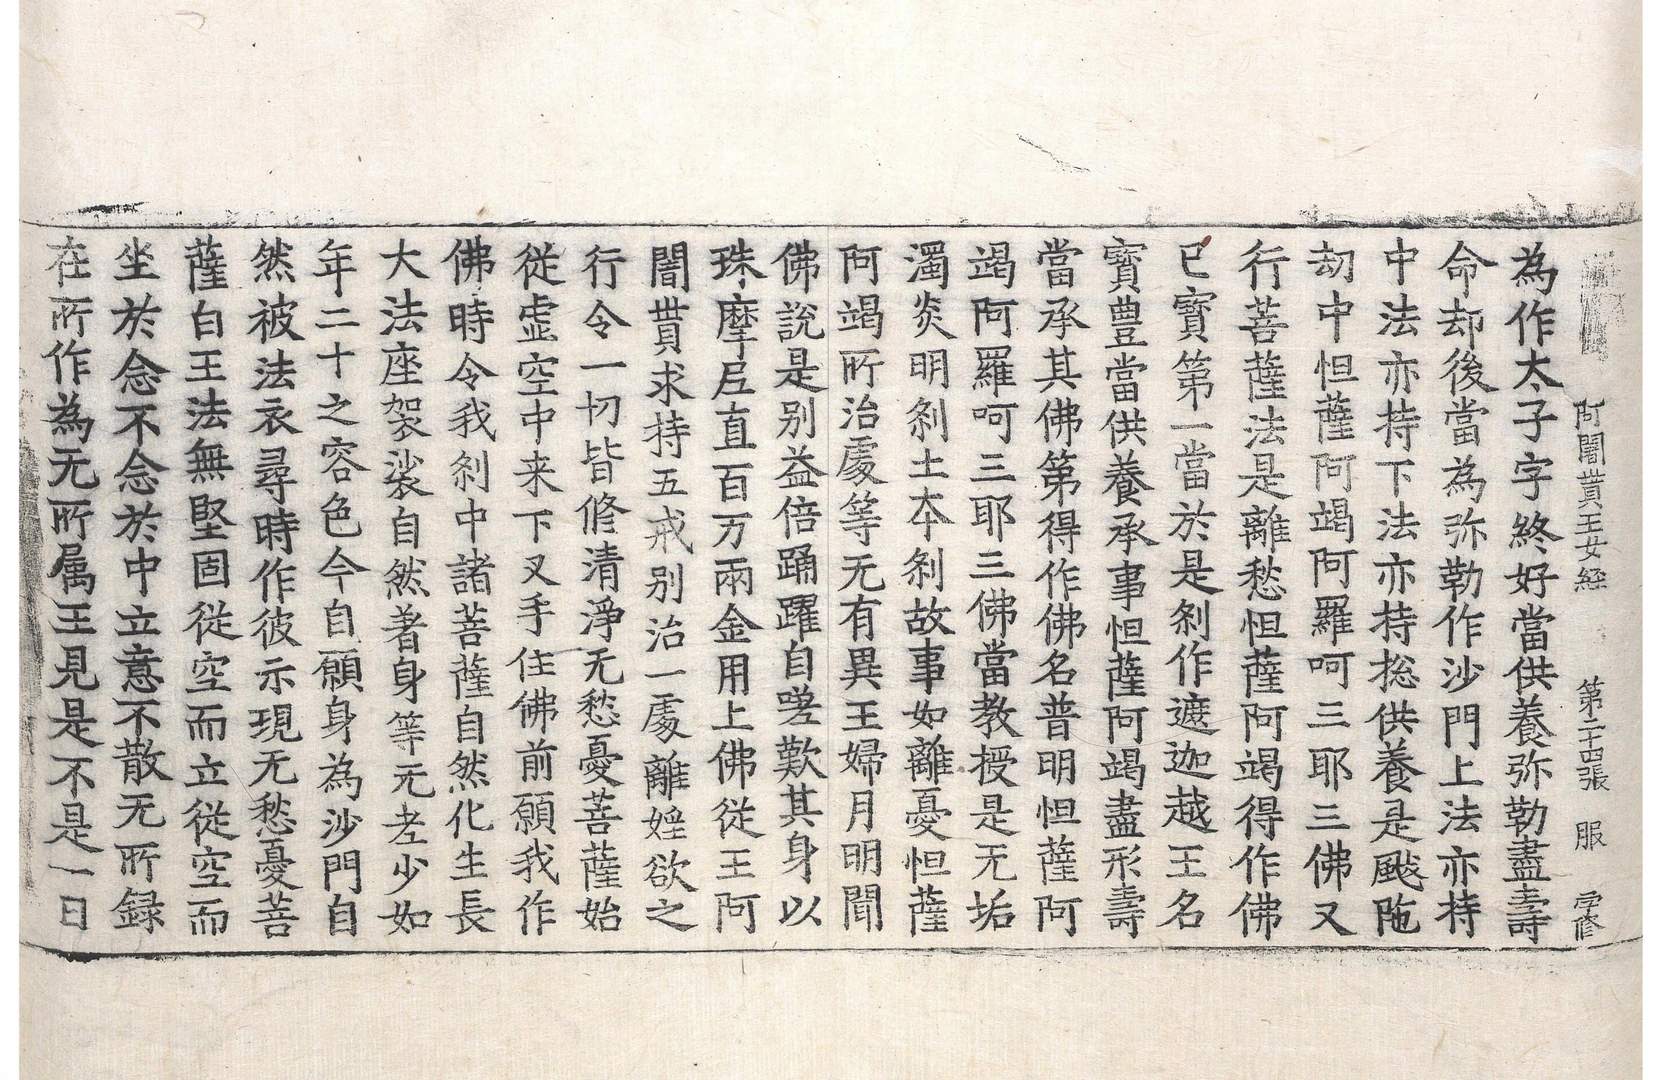 阿闍貰王女経 第二十四張 服 孛修
為作太子字終好當供養弥勒盡壽
命却後當為弥勒作沙門上法亦持
中法亦持下法亦持捴供養是颰陁
劫中怛薩阿竭阿羅呵三耶三佛又
行菩薩法是離愁怛薩阿竭得作佛
已寳第一當於是刹作遮迦越王名
寳豊當供養承事怛薩阿竭盡形壽
當承其佛第得作佛名普明怛薩阿
竭阿羅呵三耶三佛當教授是无垢
濁炎明刹土夲刹故事如離憂怛薩
阿竭所治處等无有異王婦月明聞
佛說是別益倍踊躍自嗟歎其身以
珠摩尼直百万兩金用上佛從王阿
闍貰求持五戒別治一處離婬欲之
行令一切皆修清淨无愁憂菩薩始
従虚空中来下叉手住佛前願我作
佛時令我刹中諸菩薩自然化生長
大法座袈裟自然著身等无老少如
年二十之容色今自願身為沙門自
然被法衣尋時作彼示現无愁憂菩
薩白王法無堅固従空而立従空而
坐於念不念於中立意不散无所録
在所作為无所属王見是不是一日